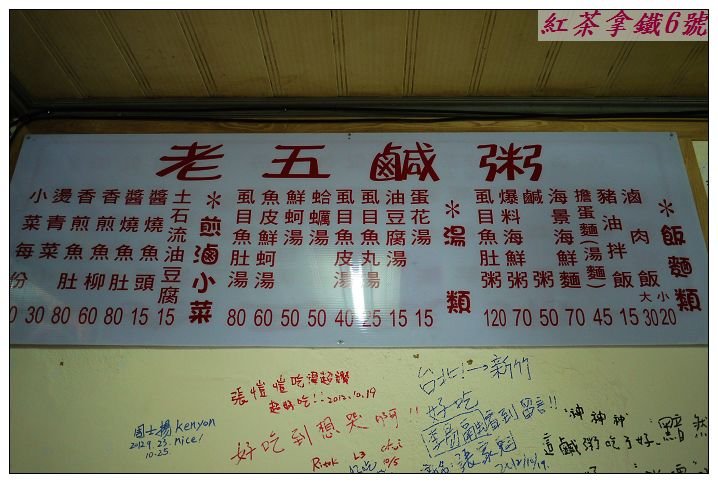 紅茶拿鐵6號
老五鹹粥
＊飯麵類
滷肉飯 大30 小20
豬油拌飯 15
擔蛋麵(湯麵) 45
海景海鮮麵 70
鹹 粥 50
爆料海鮮粥 70
虱目魚肚粥 120
＊湯類
蛋花湯 15
油豆腐湯 15
虱目魚丸湯 25
虱目魚皮湯 40
蛤蠣湯 50
鮮蚵湯 50
魚皮鮮蚵湯 60
虱目魚肚湯 80
＊煎滷小菜
土石流油豆腐 15
醬燒魚頭 15
醬燒魚肚 80
香煎魚柳 60
香煎魚肚 80
燙青菜 30
小菜每份
張愷愷吃過超讚
超好吃!!2012.10.19
台北!→新竹
好吃
kenyon
nice!
10.25.
好吃到想哭
留言!!
神神神
這鹹粥吃了好
黯然